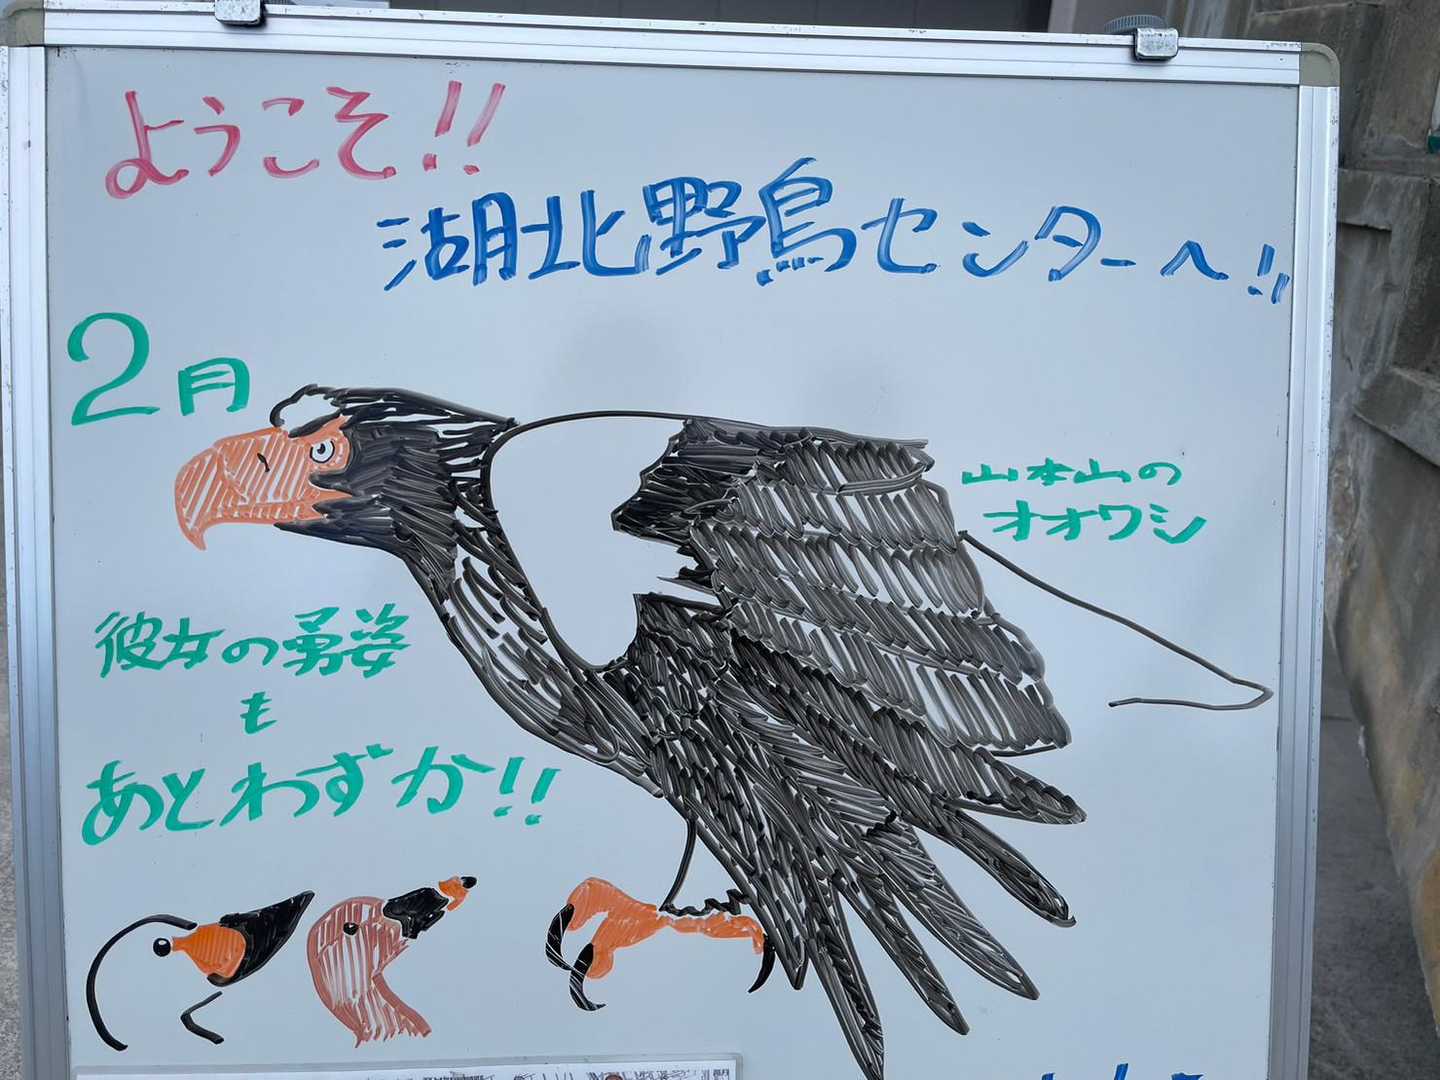 ようこそ!!
湖北野鳥センターへ!!
2月
山本山の
オオワシ
彼女の勇姿
も
あとわずか!!